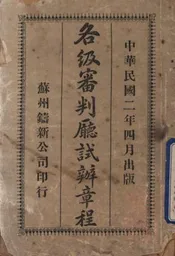 中華民國二年四月出版
各級審判廳試辦章程
蘇州鑄新公司印行